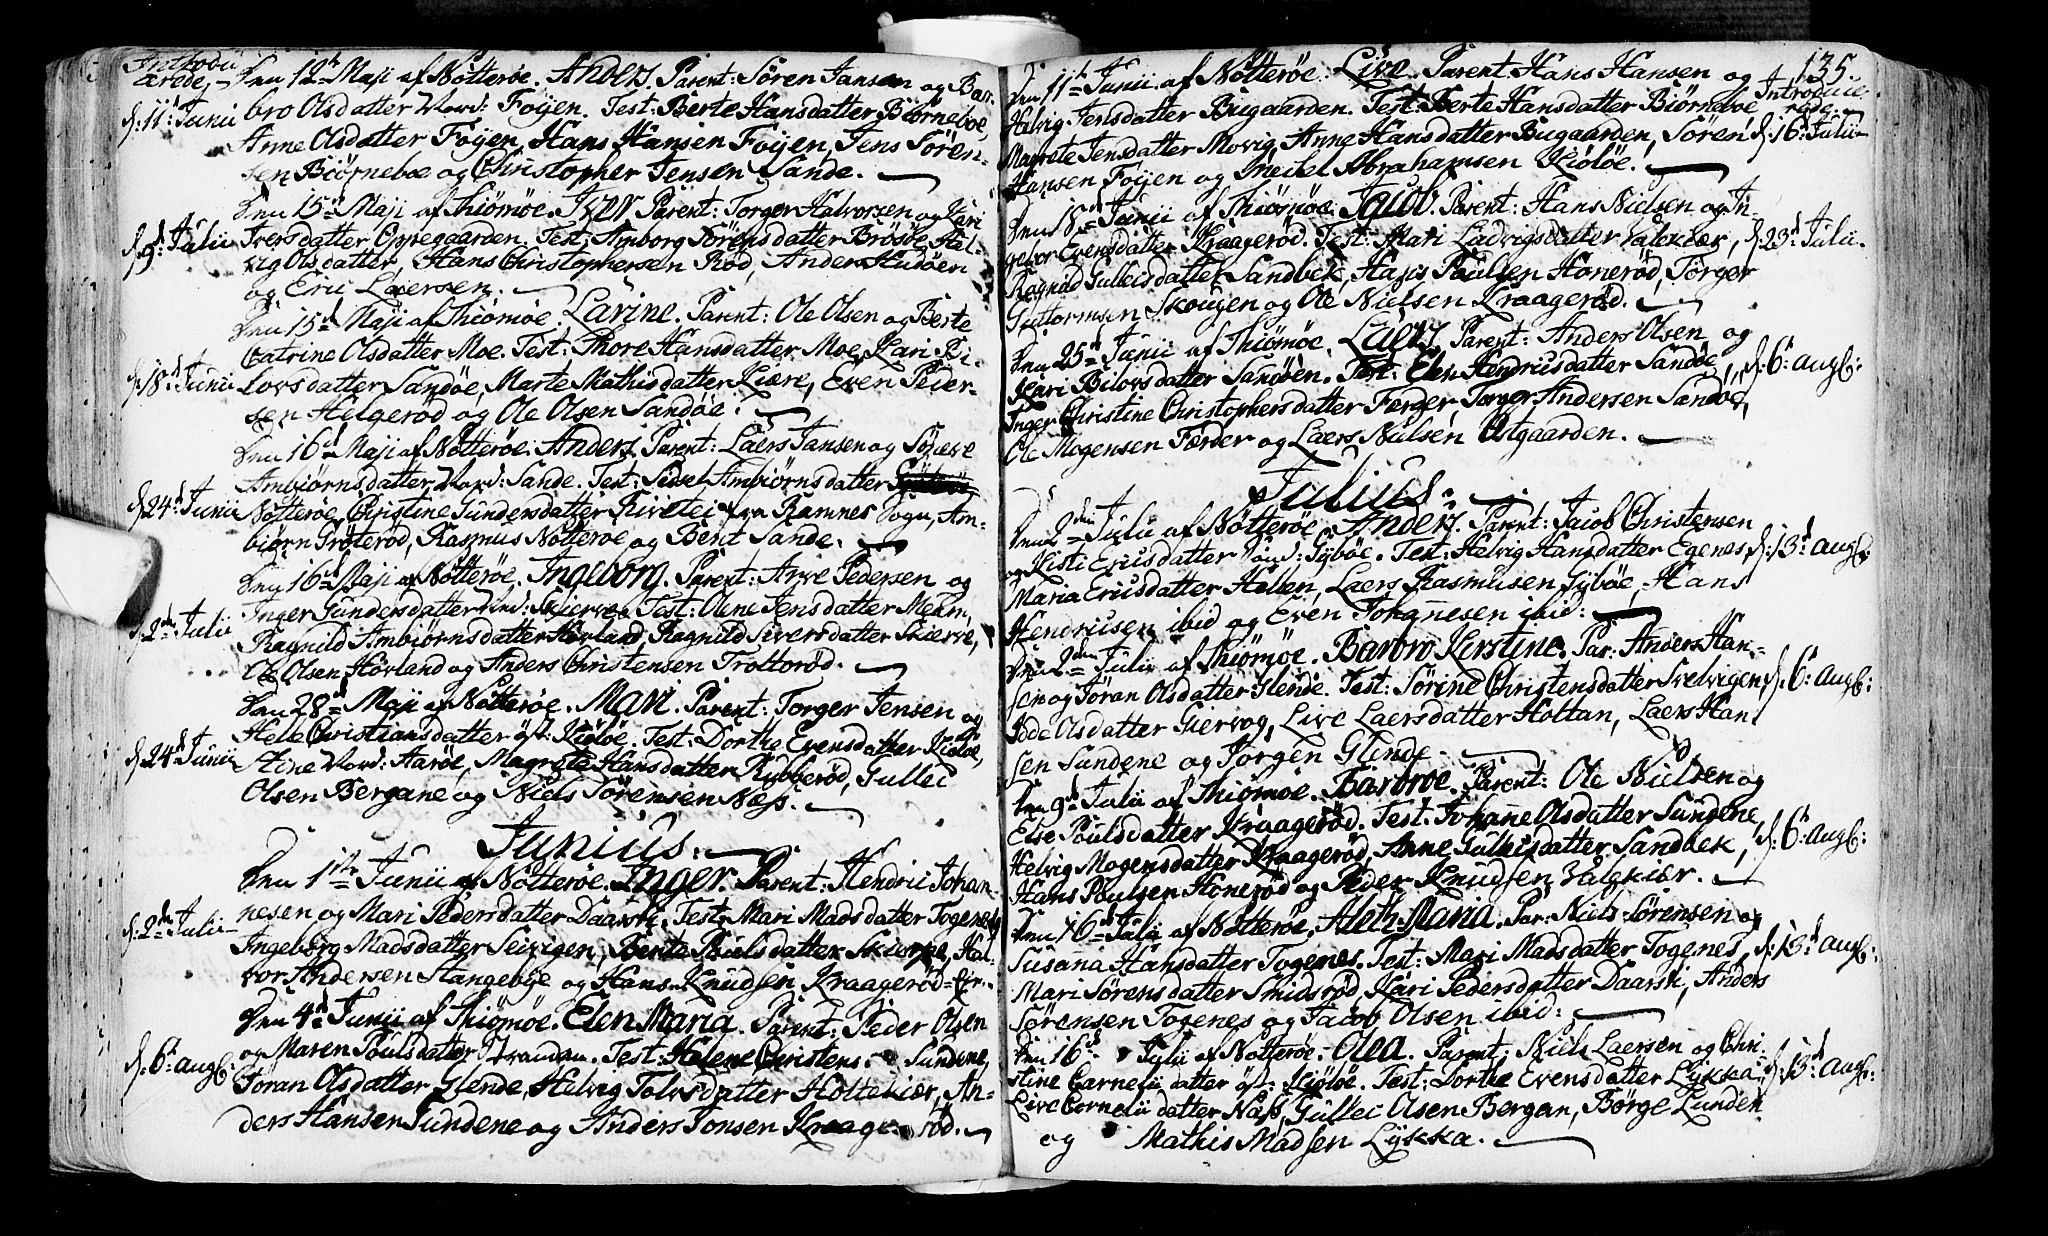 Introdu
cerede,
Den 12te Maji af Nötteröe. Anders. Parent: Sören Jansen og Bar-
d: 11t Junii bro Olsdatter Nord: Föyen. Test: Berte Hansdatter Biörneboe,
Anne Olsdatter Föyen, Hans Hansen Föyen, Jens Sören-
sen Biörneboe og Christopher Jensen Sande.
Den 15d Maji af Thiömöe. Iver Parent: Torger Halvorsen og Kari
d: 9d Julii Iversdatter Oppegaarden. Test: Amborg Sörensdatter Brösöe, Hel-
vig Olsdatter, Hans Christophersen Röd, Anders Hudöen
og Eric Laersen.
Den 15d Maji af Thiömöe. Larine. Parent: Ole Olsen og Berte
Catrine Olsdatter Moe. Test: Thore Hansdatter Moe, Kari Bi-
d: 18d Junii lovsdatter Sandöe, Marte Mathisdatter Kiære, Even Peier-
sen Helgeröd og Ole Olsen Sandöe.
Den 16d Maji af Nötteröe. Anders Parent: Laers Jansen og
Ambiörnsdatter Nord: Sande. Test: Sidsel Ambiörnsdatter
d: 24d Junii Nötteröe, Christine Gundersdatter fra Ramnes Sogn, Am-
biörn Gröteröd, Rasmus Nötteroe og Bent Sande.
Den 16d Maji af Nötteröe. Ingeborg. Parent: Arve Pedersen og
Inger Gundersdatter Nord: Skierve. Test: Olene Jensdatter Mehm,
d: 2den Julii Ragnild Ambiörnsdatter Hovland, Ragnild Siversdatter Skierve,
Ole Olsen Hövland og Anders Christensen Trottoröd.
Den 28d Maji af Nötteröe. Mari. Parent: Torger Jensen og
Hele Christiansdatter öst: Kiölöe. Test: Dorthe Evensdatter Kiölöe,
d: 24d Junii Stine Nord: Aaröe, Magrete Hansdatter Rubberöd, Gullec
Olsen Bergane og Niels Sörensen Næss.
Junius.
Den 1ste Junii af Nötteröe. Inger. Parent: Hendric Johan-
nesen og Mari Pedersdatter Daarski. Test: Mari Madsdatter Togenes,
d: 2den Julii Ingeborg Madsdatter Berte Poulsdatter Hal-
vor Andersen Hangebye og Hans Knudsen Kraageröd
Den 4d Junii af Thiömöe. Elen Maria. Parent: Peder Olsen
og Maren Poulsdatter Test: Helene Christens- Sundene,
d: 6t augb: Jöran Olsdatter Glende, Helvig Tolvsdatter Holtekiær, An-
ders Hansen Sundene og Anders Jonsen Kraageröd.
135.
Introduce-
rede.
Den 11te Junii af Nötteröe. Live. Parent Hans Hansen og
Helvig Jensdatter Bugaarden. Test: Berte Hansdatter Biörneboe,
Magrete Jensdatter Movig, Anne Hansdatter Bugaarden, Sören d: 16t Julii
Hansen Föyen og Abrahamsen Kiölöe.
Den 18d Junii af Thiömöe. Jacob. Parent: Hans Nielsen og In-
gebor Evensdatter Kraageröd. Test: Mari Ladvigsdatter Valekiær, d: 23d Julii.
Ragnild Gullicsdatter Sandbek, Hans Poulsen Honeröd, Torger
Guttormsen Skougen og Ole Nielsen Kraageröd.
Den 25d Junii af Thiömöe. Laers. Parent: Anders Olsen og
Kari Bilovsdatter Sandöen. Test: Elen Hendricsdatter Sandöe, d: 6t augb:
Inger Christine Christophersdatter Ferder, Torger Andersen Sandöe,
Ole Mogensen Ferder og Laers Nielsen Ostgaarden.
Julius.
Den 2den Julii af Nötteröe. Anders. Parent: Jacob Christensen
og Kisti Ericsdatter Nord: Gyböe. Test: Helvig Hansdatter Egenes, d: 13d augb:
Maria Ericsdatter Holen, Laers Rasmusen Gyböe, Hans
Hendricsen ibid og Even Johannesen ibid:
Den 2den Julii af Thiömöe. Barbro Kirstine. Par: Anders Han-
sen og Jöran Olsdatter Glende. Test: Sörine Christensdatter Svelvigen, d: 6t augb:
Odde Olsdatter Giervog, Live Laersdatter Holtan, Laers Han-
sen Sundene og Jörgen Glende.
Den 9d Julii af Thiömöe. Barbroe. Parent: Ole Nielsen og
Else Poulsdatter Kraageröd. Test: Johane Olsdatter Sundene,
Helvig Mogensdatter Kraageröd, Anne Gullicsdatter Sandbek, d: 6t augb:
Hans Poulsen Honeröd og Peder Knudsen Valekiær.
Den 16d Julii af Nötteröe, Aleth Maria. Par: Niels Sörensen og
Susana Hansdatter Togenes. Test: Mari Madsdatter Togenes, d: 13d augb:
Mari Sörensdatter Smidsröd, Kari Pedersdatter Daarski, Anders
Sörensen Togenes og Jacob Olsen ibid:
Den 16d Julii af Nötteröe. Olea. Parent: Niels Laersen og Chri-
stine Cornelii datter öst: Kiölöe. Test: Dorthe Evensdatter Lykka, d: 13d augb:
Live Cornelii datter Næss, Gullec Olsen Bergan, Börge Lunden
og Mathis Madsen Lykka.